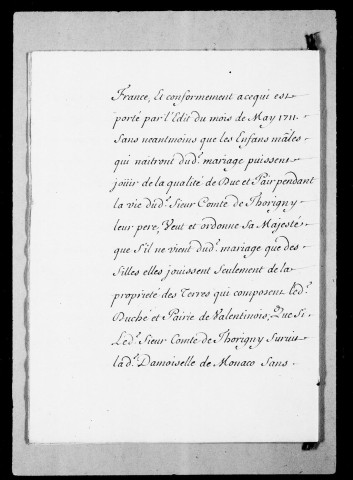 France, Et conformement a ce qui est
porté par l'Edit du mois de May 1711.
Sans neantmoins que les Enfans mâles
qui naitront dud.t mariage puissent
joüir de la qualité de Duc et Pair pendant
la vie dud.t Sieur Comte de Thorigny
leur pere, Veut et ordonne Sa Majesté
que S'il ne vient dud.t mariage que des
filles elles jouissent Seulement de la
proprieté des Terres qui composent led.t
Duché et Pairie de Valentinois, Que Si
Led.t Sieur Comte de Thorigny Survit
lad.e Damoiselle de Monaco Sans